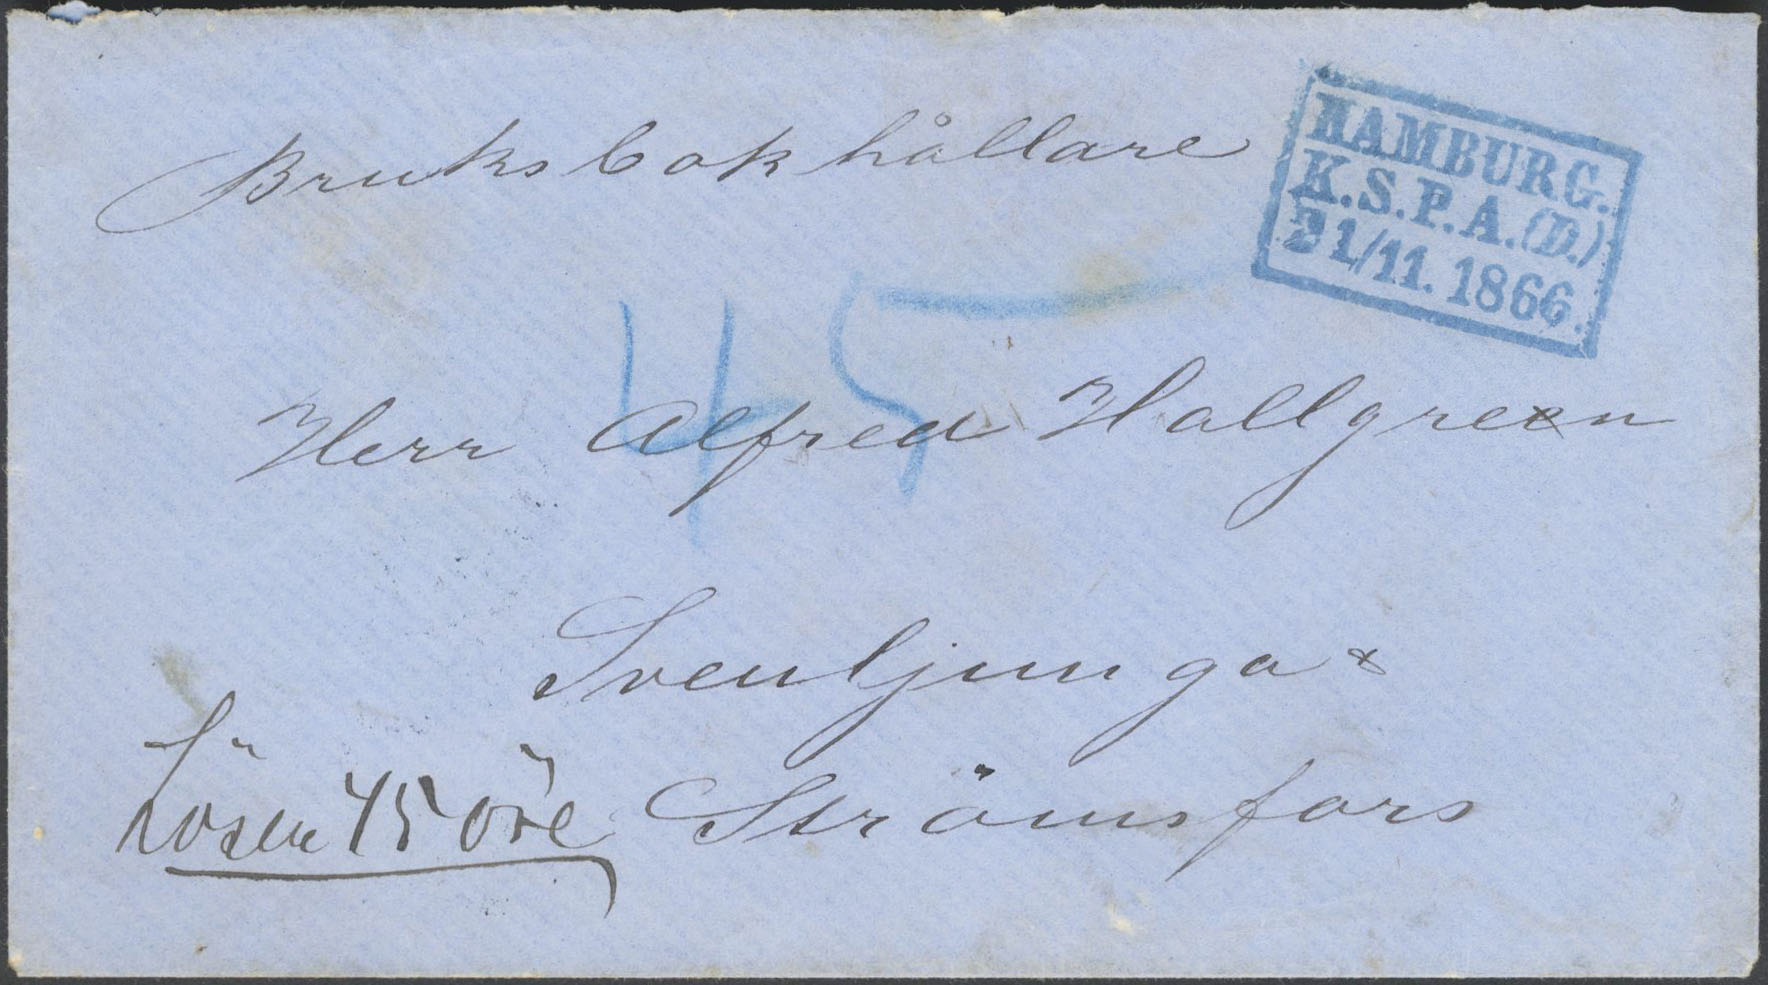 Bruksbokhållare
HAMBURG.
K.S.P.A.(D.)
21/11. 1866.
45
Herr Alfred Hallgreen
Svenljunga &
Strömsfors
Lösen 45 öre